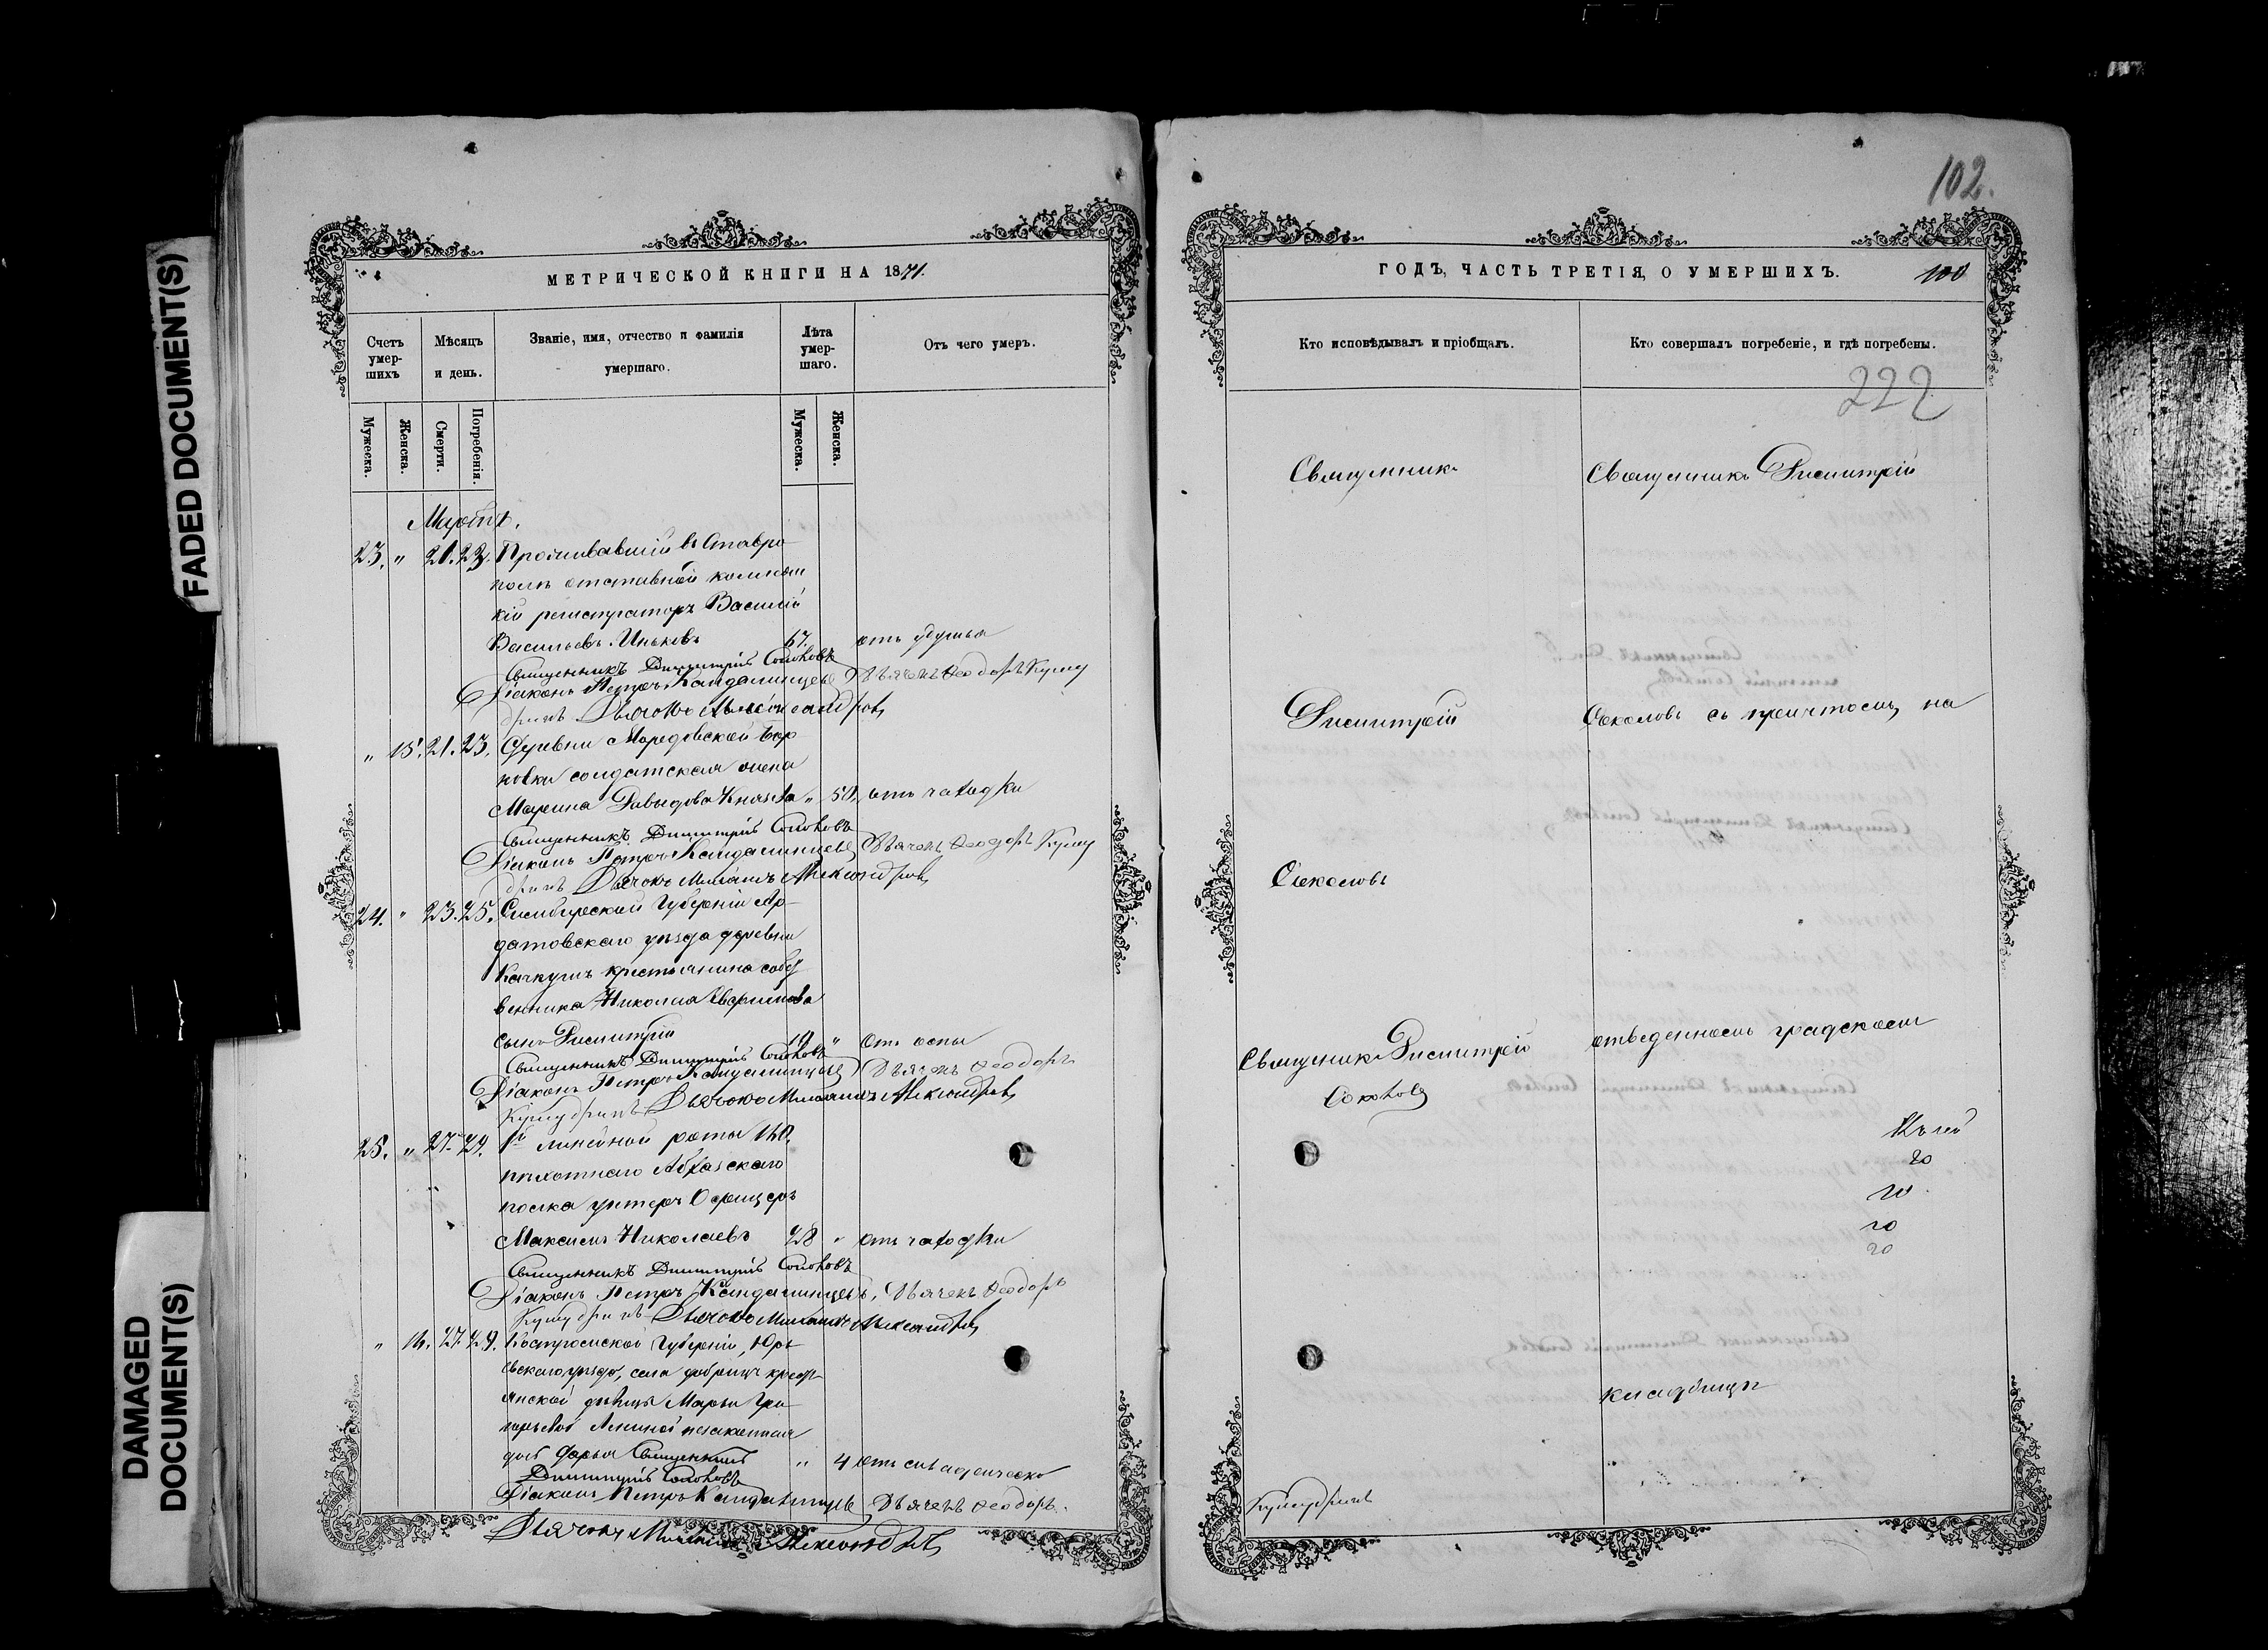 FADED DOCUMENT(S)
DAMAGED
DOCUMENT(S)
МЕТРИЧЕСКОЙ КНИГИ НА 1871.
Счетъ умер-шихъ
Мѣсяцъ и день.
Званіе, имя, отчество и фамилія умершаго.
Лѣта умер-шаго.
Отъ чего умеръ.
Мужеска.
Женска.
Смерти.
Погребенія.
Мужеска.
Женска.
Марта.
23. " 21. 23. Проживавшій въ Ставро
полѣ отставной коллежс
кій регистраторъ Василій
Васильевъ Иньковъ 67. отъ удушья
Священникъ Димитрій Соколовъ
Діаконъ Петръ Кандалинцевъ Дьячекъ Ѳеодоръ
Дьячокъ Александровъ
" 15. 21. 23. Деревни
солдатская жена
Марина Давыдова " 50. отъ чахотки
Священникъ Димитрій Соколовъ
Діаконъ Петръ Кандалинцевъ Дьячекъ Ѳеодоръ
Дьячокъ Михаилъ Александровъ
24. " 23. 25. Симбирской Губерніи Ар-
датовскаго уѣзда деревни
Качкушъ крестьянина собст
венника Николая Евфимова
сынъ Димитрій 10 " отъ оспы
Священникъ Димитрій Соколовъ
Діаконъ Петръ Кандалинцевъ Дьячекъ Ѳеодоръ
Дьячокъ Михаилъ Александровъ
25. " 27. 29. 1й линейной роты 160.
пѣхотнаго Абхазскаго
полка унтеръ Офицеръ
Максимъ Николаевъ 28 " отъ чахотки
Священникъ Димитрій Соколовъ
Діаконъ Петръ Кандалинцевъ, Дьячекъ Ѳеодоръ
Дьячокъ Михаилъ Александровъ
" 16. 27. 29. Костромской Губерніи, Юрь
евскаго уѣзда, села крестья
нской дѣвицы Марьи Гри
горьевой незаконная
дочь Дарья Священникъ " 4
Димитрій Соколовъ
Діаконъ Петръ Кандалинцевъ Дьячекъ Ѳеодоръ.
Дьячокъ Михаилъ Александровъ
102.
ГОДЪ, ЧАСТЬ ТРЕТІЯ, О УМЕРШИХЪ. 100
Кто исповѣдывалъ и пріобщалъ.
Кто совершалъ погребеніе, и гдѣ погребены.
222
Священникъ
Священникъ Димитрій
Димитрій
Соколовъ съ причтомъ, на
Соколовъ
Священникъ Димитрій
отведенномъ градскомъ
Соколовъ
20
20
20
20
кладбищѣ